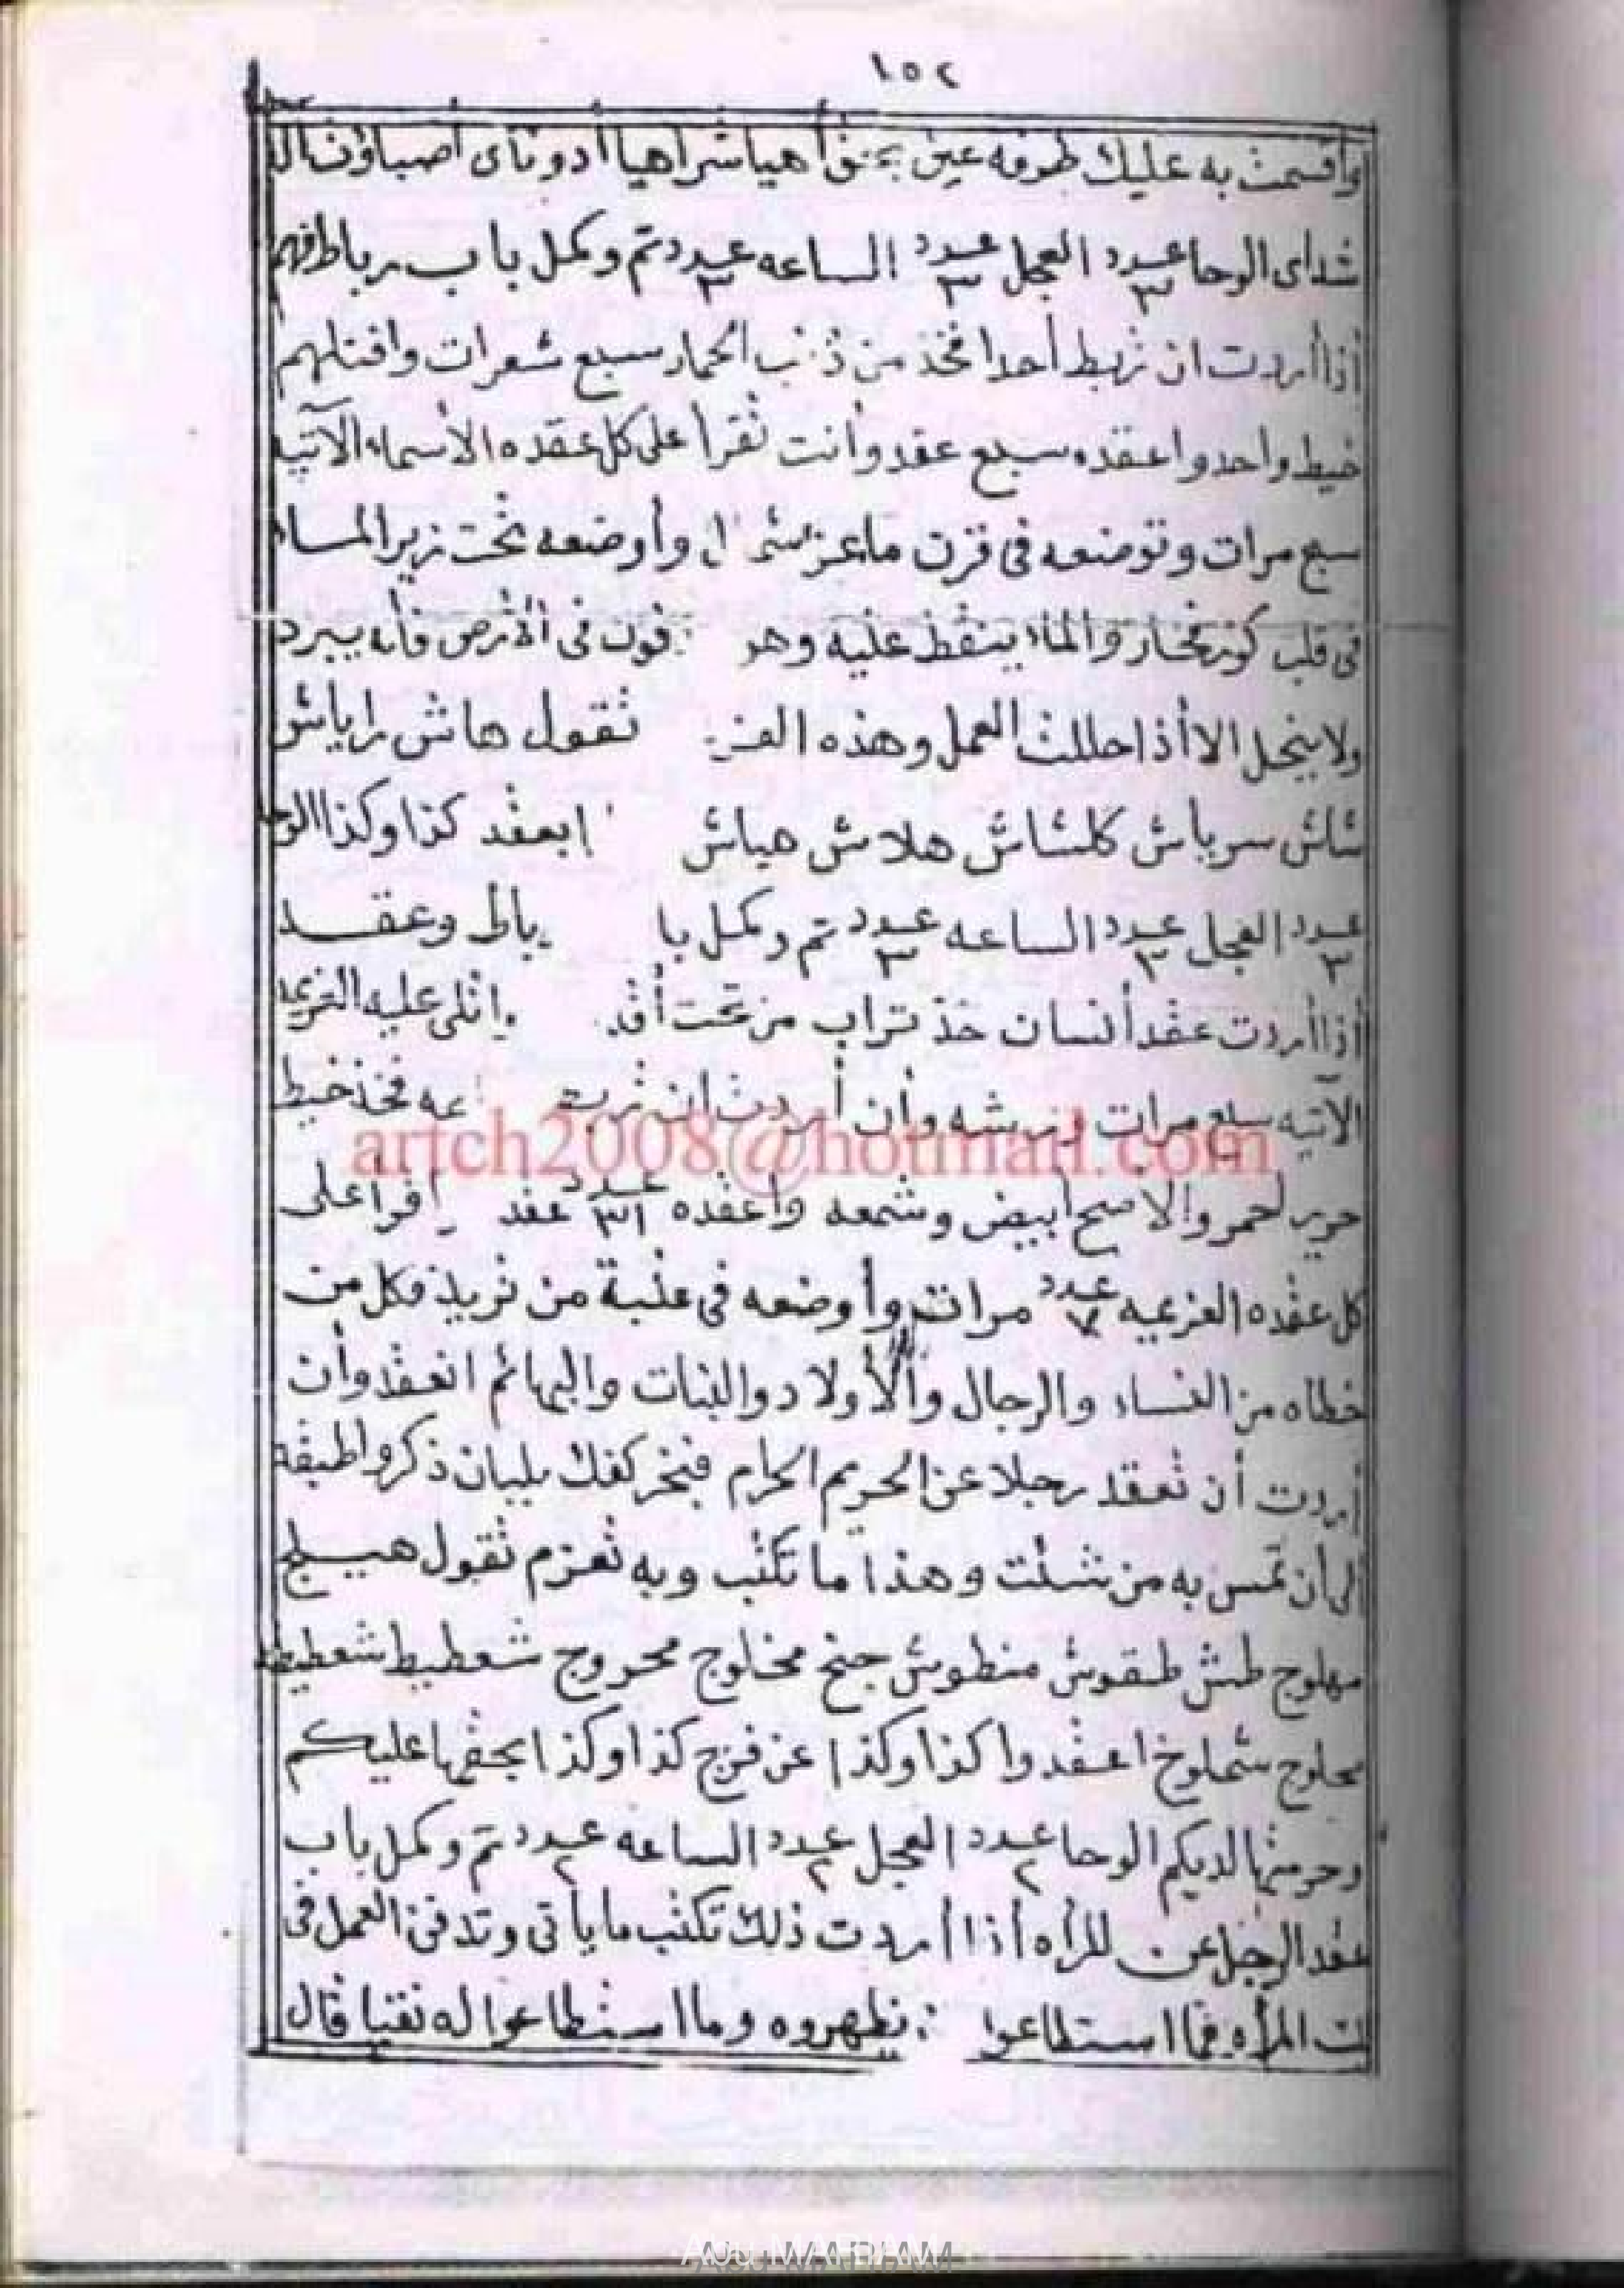 ١٥٢
وأقسمت به عليك طرفه عين بحق أهيا شراهيا أدوناى أصباؤت ال
شداى الوحا عدد ٣ العجل عدد ٣ الساعه عدد ٣ تم وكمل باب رباط فهم
أذا أردت ان تربط أحدا فخذ من ذنب الحمار سبع شعرات وافتلهم
خيط واحد واعقده سبع عقد وأنت تقرأ على كل عقده الأسماء الآتيه
سبع مرات وتوضعه فى قرن ماعز وأوضعه تحت زير الماء
فى قلب كوز فخار والماء ينقط عليه وهو فى الأرض فأنه يبرد
ولا ينحل الا أذا حللت العمل وهذه تقول هاش راياش
شاش سرياش كلشاش هلاش هياش كذا وكذا الوحا
عدد ٣ العجل عدد ٣ الساعه عدد ٣ تم وكمل وعقد
أذا أردت عقد أنسان خذ تراب من تحت واتلى عليه
الآتيه سبع مرات ورشه وأن أردت ان فخذ خيط
حرير أحمر والا صح أبيض وشمعه واعقده عدد عقد اقرأ على
كل عقده العزيميه عدد ٧ مرات وأوضعه فى علبة من فكل من
خطاه من النساء والرجال والأولاد والبنات والبهائم انعقد وأن
أردت أن تعقد رجلا عن الحريم الحرام فبخر كفك بلبان ذكر واطبقه
الى أن تمس به من شئت وهذا ما تكتب وبه تعزم تقول هيلج
مهلوج طش طقوش منطوش جنح مخلوج محروج شعطيط شعطيط
محلوج شملوخ اعقدوا كذا وكذا عن فرج كذا وكذا بحقها عليكم
وحرمتها لديكم الوحا عدد ٢ العجل عدد ٢ الساعه عدد ٢ تم وكمل باب
عقد الرجل عن المرأه أذا أردت ذلك تكتب ما يأتى وتدفن العمل فى
المرأه فما استطاعوا يظهروه وما استطاعوا له نقبا قال
artch2008@hotmail.com